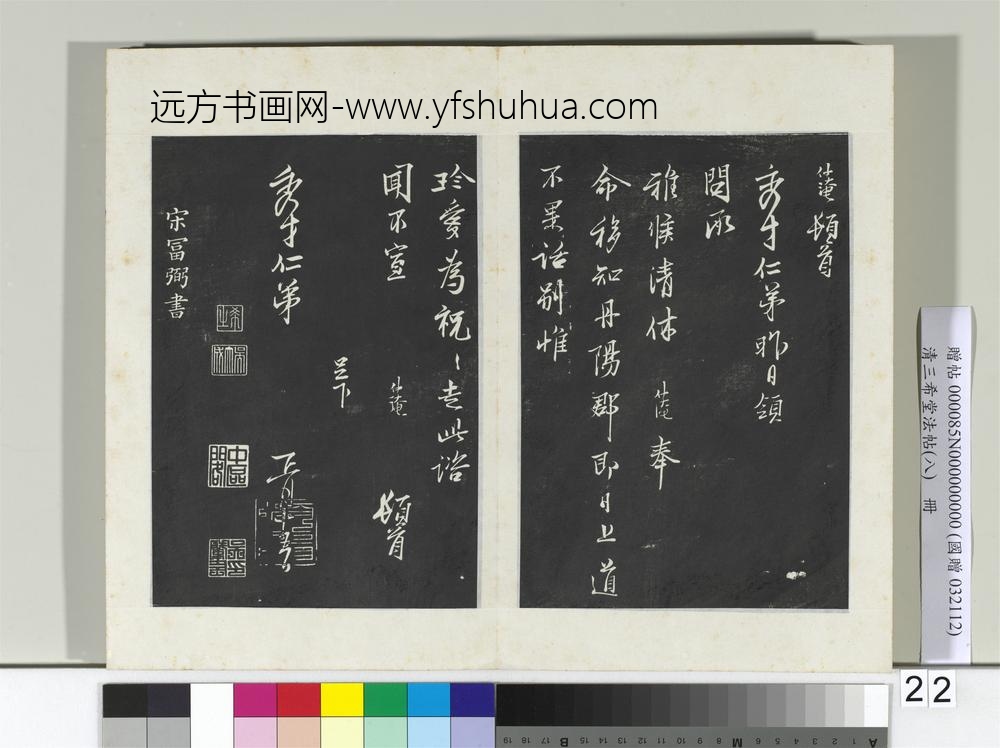 远方书画网-www.yfshuhua.com
頓首
秀才仁弟昨日領
問所
雅候清休 奉
命移知丹陽郡即日上道
不果話別惟
珍愛為祝〻走此諮
聞不宣
頓首
秀才仁弟
足下
宋富弼書
贈帖 000085N000000000 (國贈 032112)
清三希堂法帖(八) 冊
22
A 1 2 3 4 5 6 M 8 9 10 11 12 13 14 15 B 17 18 19